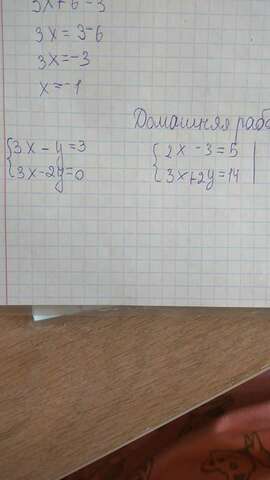 3x+6=3
3x = 3-6
3x=-3
x=-1
Домашняя рабо
{3x - y = 3
{3x-2y=0
{2x -3=5
{3x+2y=14